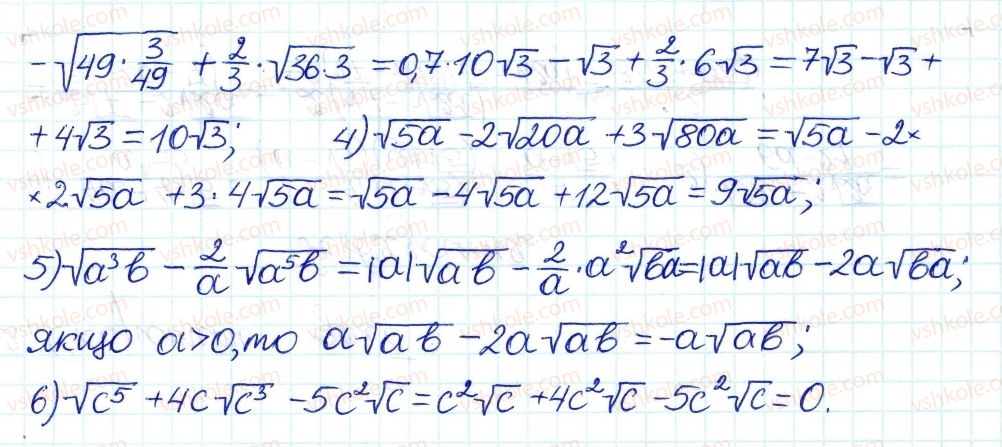 -√(49·3/49) + 2/3·√(36·3) = 0,7·10√3 - √3 + 2/3·6√3 = 7√3 - √3 +
+ 4√3 = 10√3; 4) √(5a) - 2√(20a) + 3√(80a) = √(5a) - 2×
×2√(5a) + 3·4√(5a) = √(5a) - 4√(5a) + 12√(5a) = 9√(5a);
5) √(a³b) - 2/a √(a⁵b) = |a|√(ab) - 2/a·a²√(ba) = |a|√(ab) - 2a√(ba);
якщо a>0, то a√(ab) - 2a√(ab) = -a√(ab);
6) √(c⁵) + 4c√(c³) - 5c²√c = c²√c + 4c²√c - 5c²√c = 0.
vshkole.com